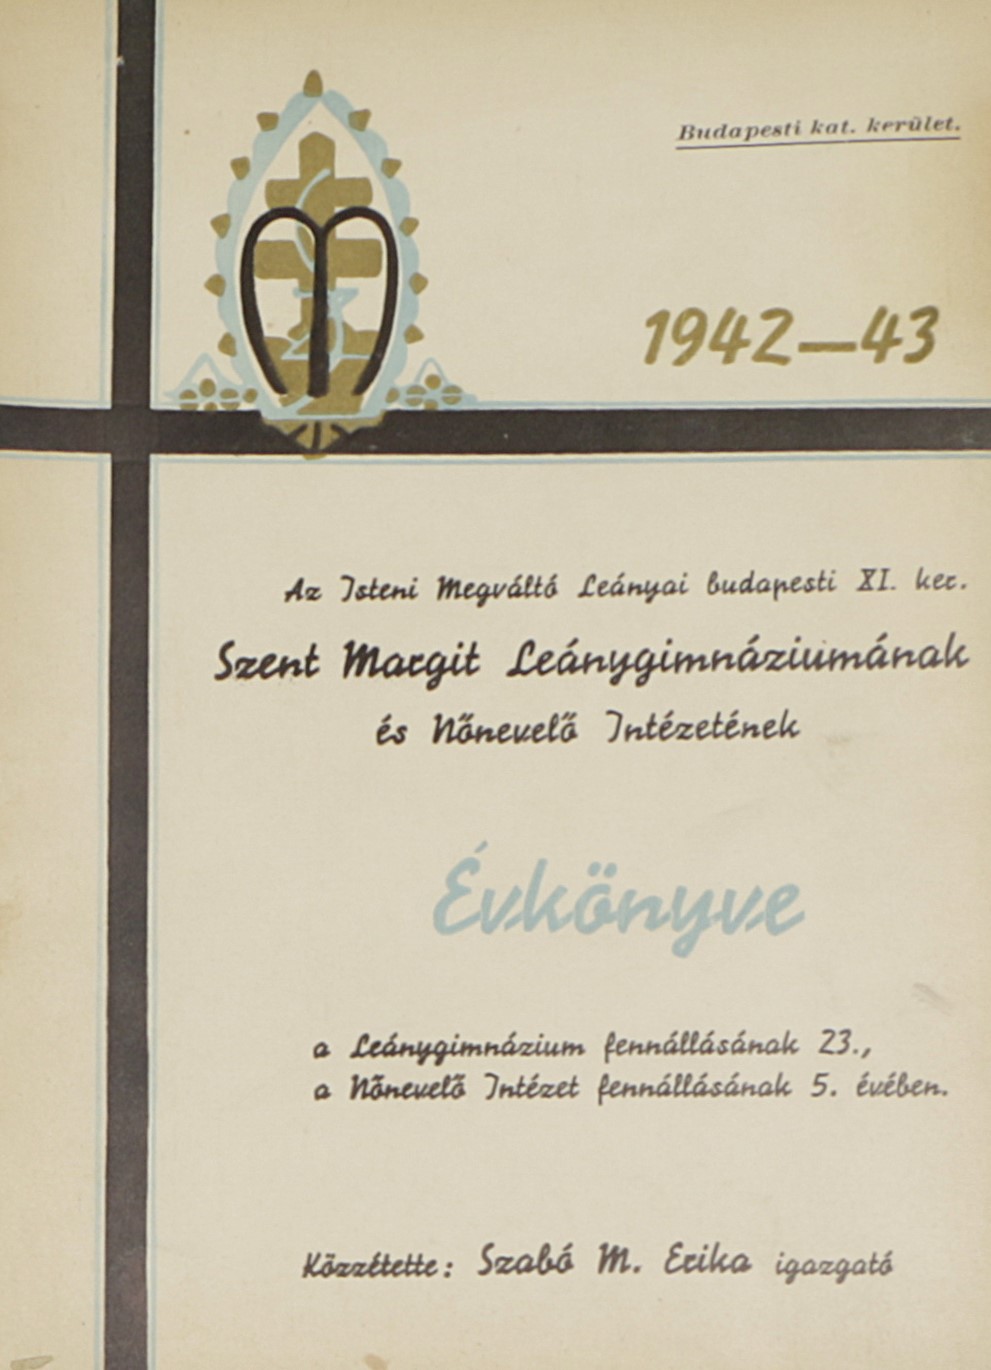 Budapesti kat. kerület.
1942—43
Az Isteni Megváltó Leányai budapesti XI. ker.
Szent Margit Leánygimnáziumának
és Nőnevelő Intézetének
Évkönyve
a Leánygimnázium fennállásának 23.,
a Nőnevelő Intézet fennállásának 5. évében.
Közzétette: Szabó M. Erika igazgató